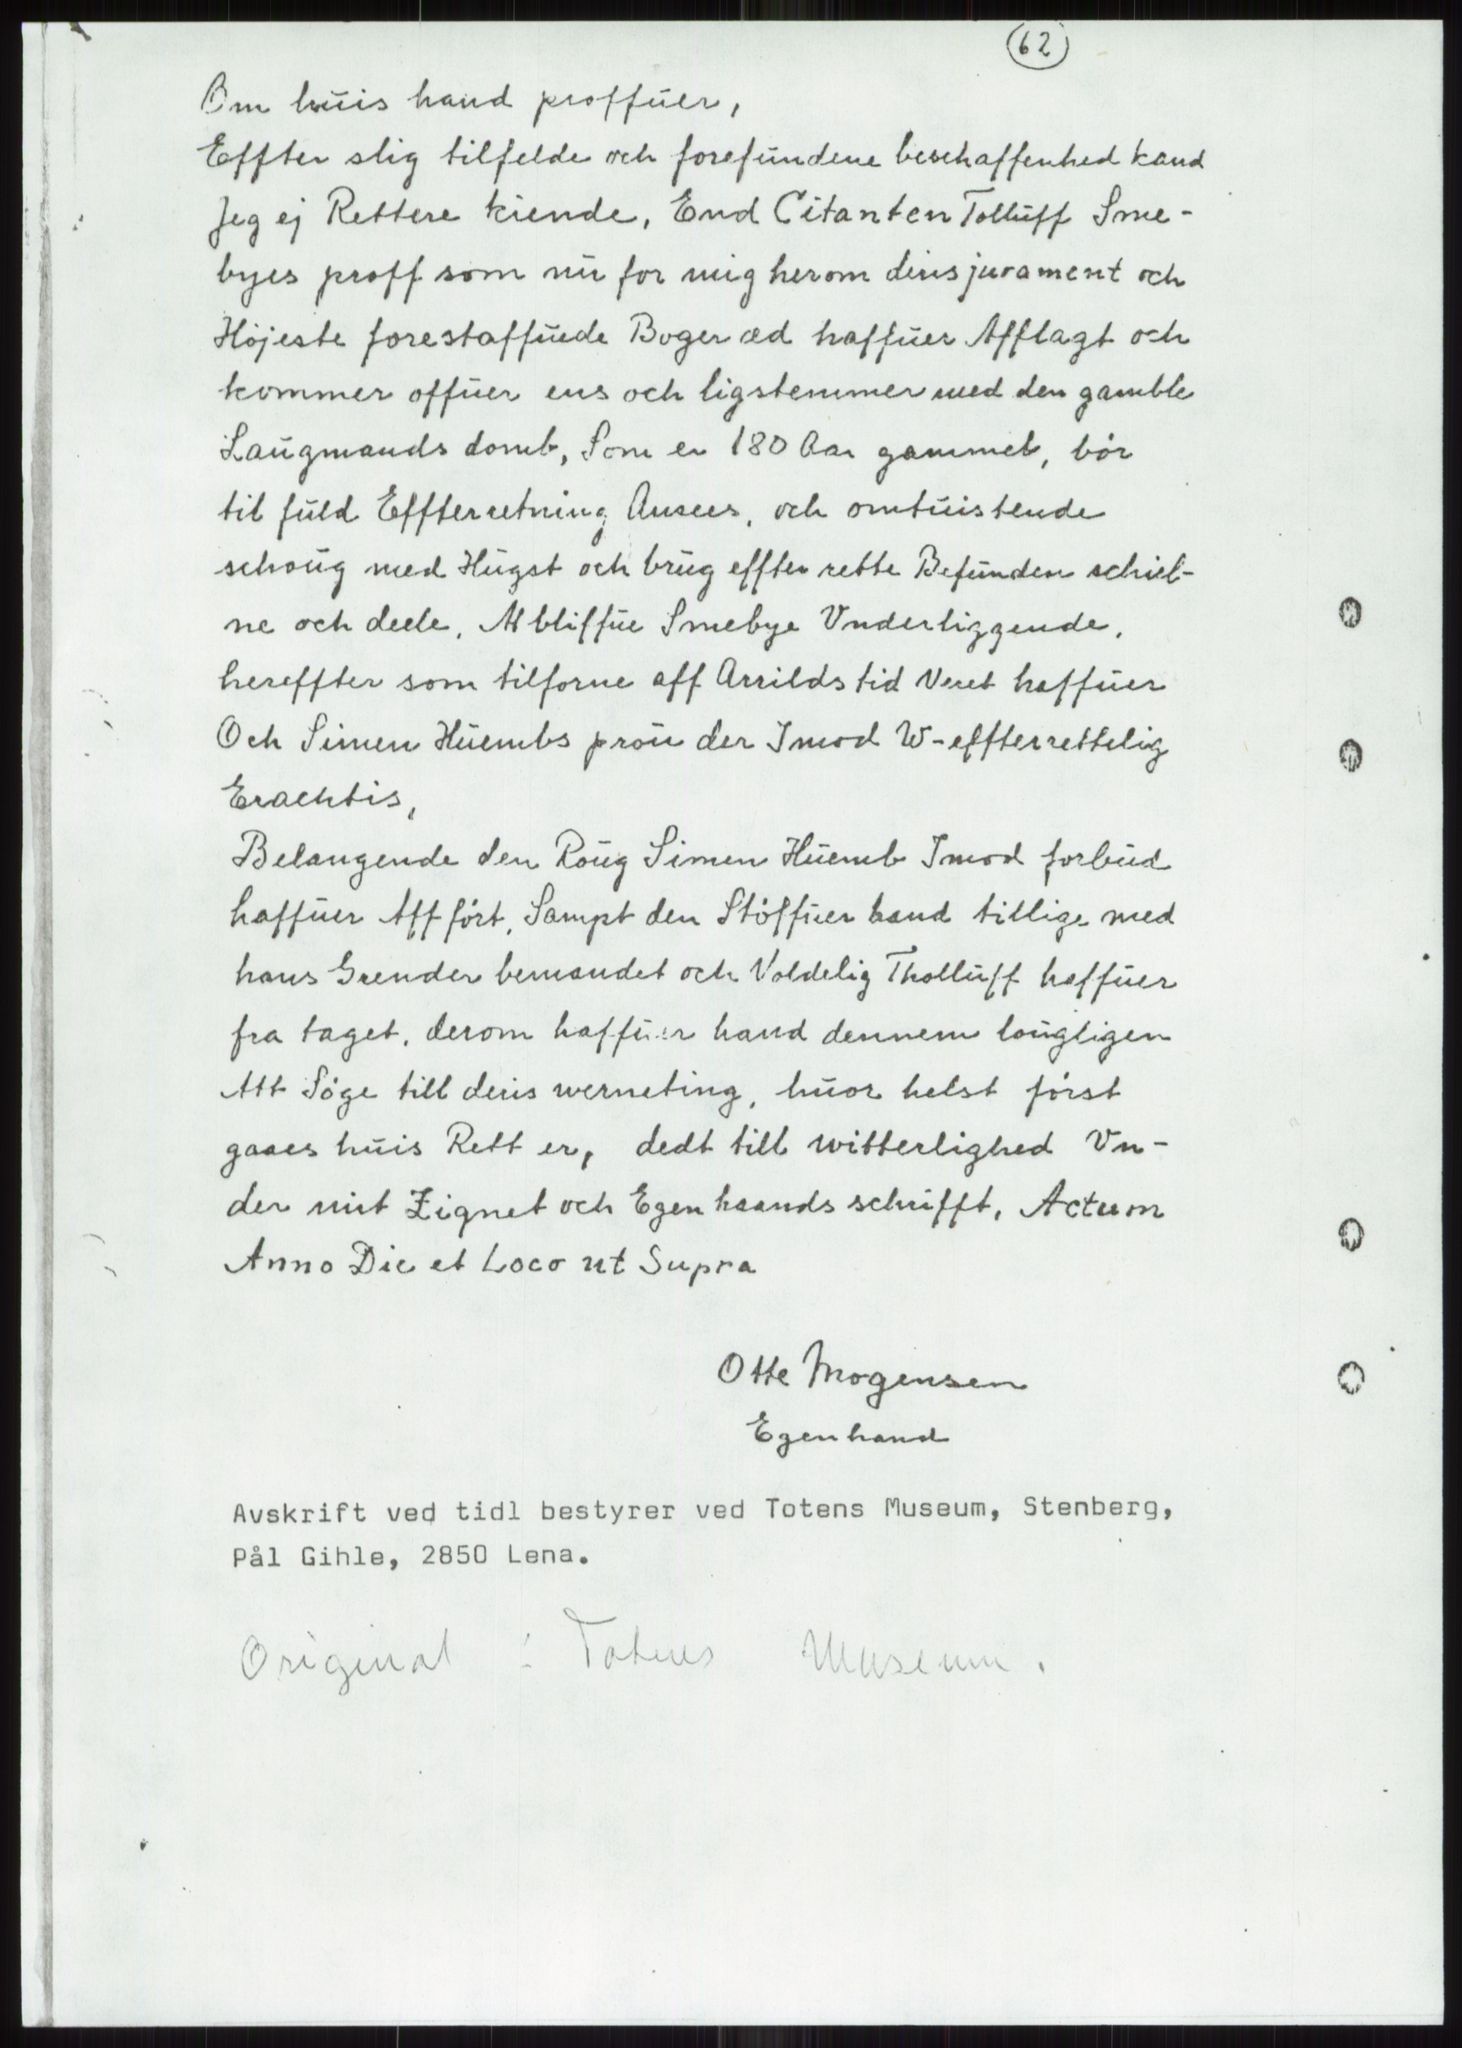 62
Om huis hand proffuer,
Effter slig tilfelde och forefundene beschaffenhed kand
Jeg ej Rettere kiende, End Citanten Tolluff Sme-
byes proff som nu for mig herom diris jurament och
Höjeste forestaffuede Boger æd haffuer Afflagt och
kommer offuer ens och ligstemmer med den gamble
Laugmands domb, Som er 180 Aar gammel, bör
til fuld Effterretning Ansees, och omtuistende
schoug med Hugst och brug effter rette Befunden schiel-
ne och deele, At bliffue Smebye Vnderliggende,
hereffter som tilforne aff Arrilds tid Veret haffuer
Och Simen Huembs prou der Imod W-effterrettelig
Erachtis,
Belangende den Roug Simen Huemb Imod forbud
haffuer Aff fört, Sampt den Stöffuer hand tillige med
hans Grender bemandet och Voldelig Tholluff haffuer
fra taget, derom haffuer hand dennem lougligen
Att Söge till deris werneting, huor helst först
gaaes huis Rett er, dedt till witterlighed Vn-
der mit Zignet och Egen haands schrifft, Actum
Anno Die et Loco ut Supra
Otte Mogensen
Egenhand
Avskrift ved tidl bestyrer ved Totens Museum, Stenberg,
Pål Gihle, 2850 Lena.
Original : Totens Museum.